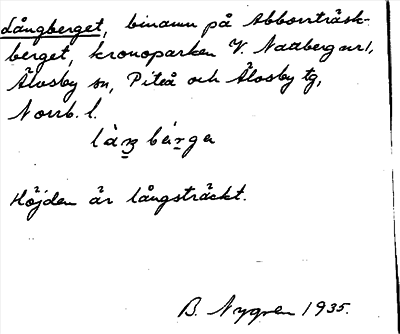 Långberget, binamn på Abborrträsk-
berget, kronoparken V. Nattberget 1,
Älvsby sn, Piteå och Älvsby tg,
Norrb. l.
Höjden är långsträckt.
B. Nygren 1935.